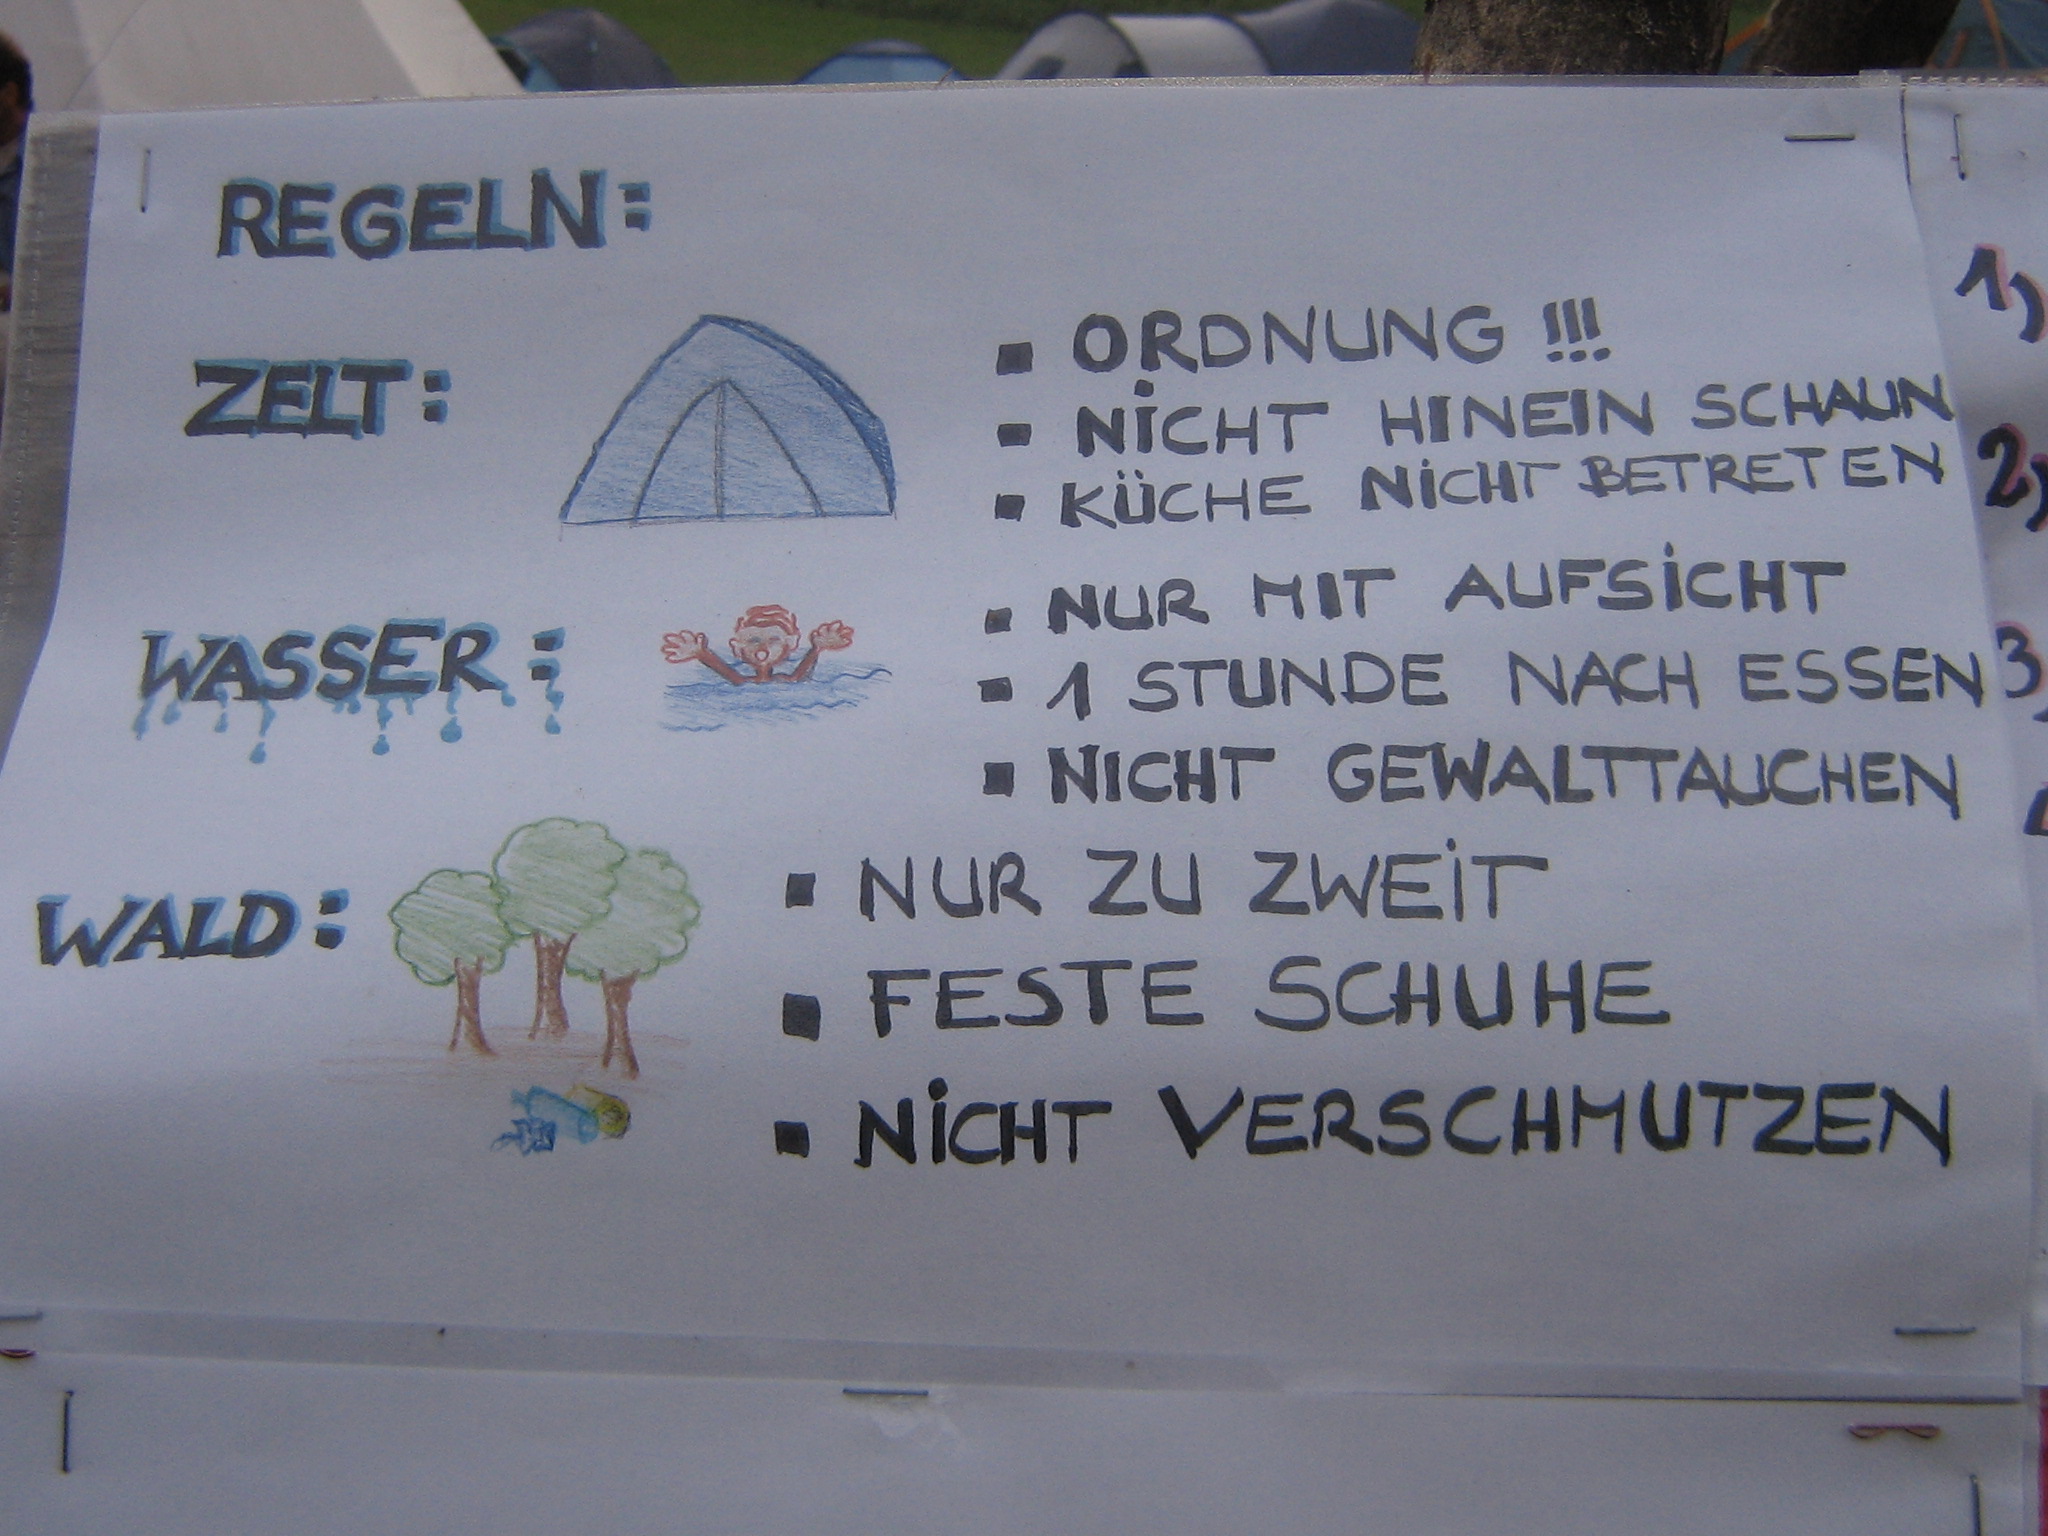 REGELN:
ZELT:
▪ ORDNUNG !!!
▪ NICHT HINEIN SCHAUN
▪ KÜCHE NICHT BETRETEN
WASSER:
▪ NUR MIT AUFSICHT
▪ 1 STUNDE NACH ESSEN
▪ NICHT GEWALTTAUCHEN
WALD:
▪ NUR ZU ZWEIT
▪ FESTE SCHUHE
▪ NICHT VERSCHMUTZEN
1)
2)
3)